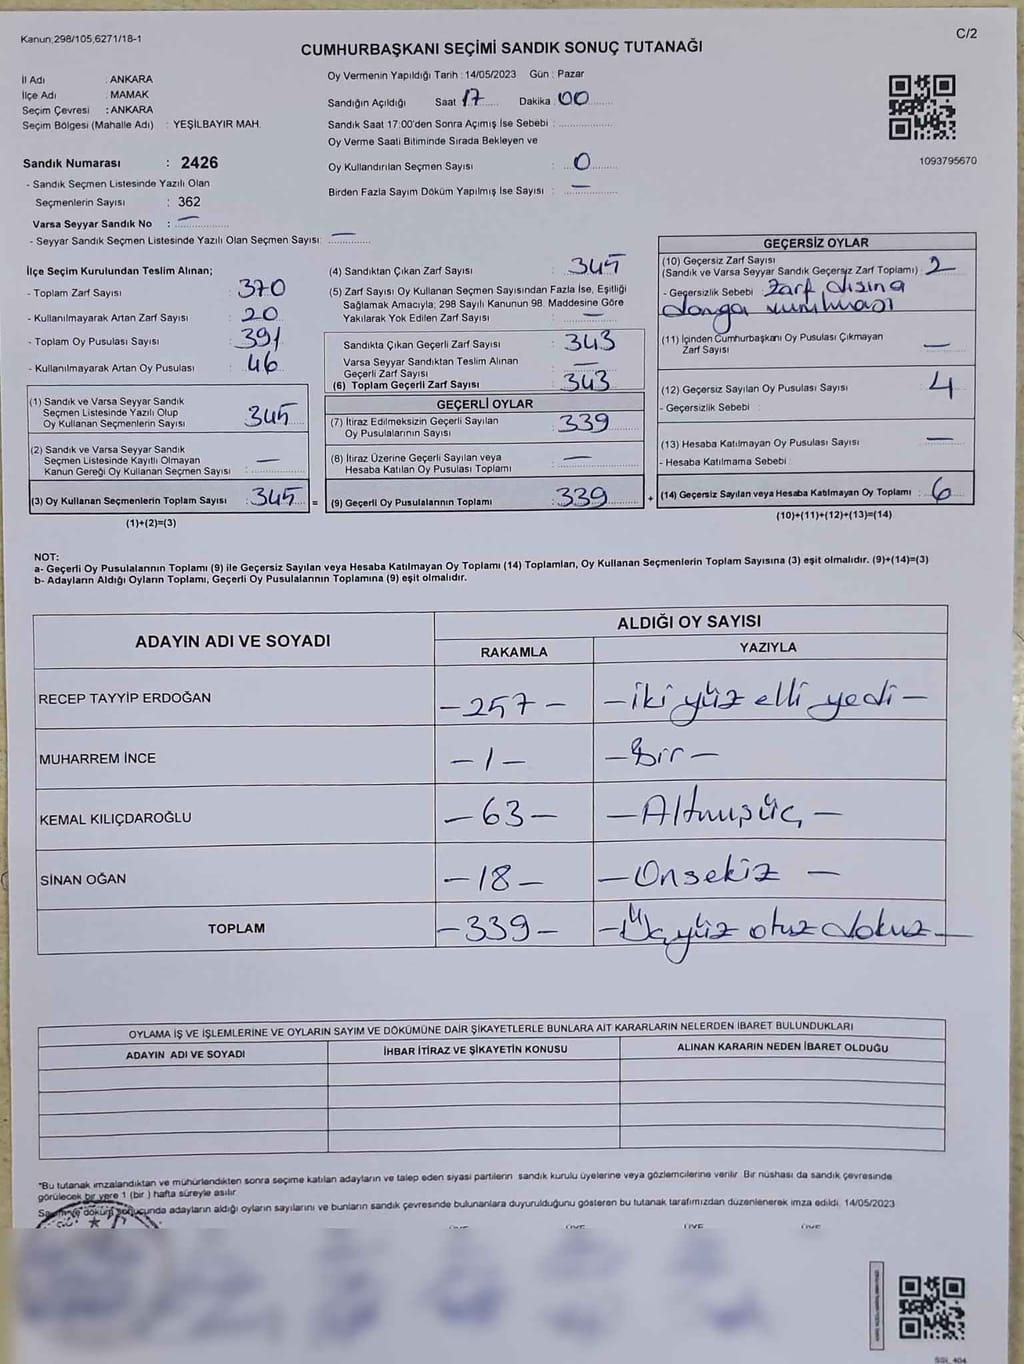 Kanun;298/105,6271/18-1
C/2
CUMHURBAŞKANI SEÇİMİ SANDIK SONUÇ TUTANAĞI
İl Adı : ANKARA
İlçe Adı : MAMAK
Seçim Çevresi : ANKARA
Seçim Bölgesi (Mahalle Adı) : YEŞİLBAYIR MAH.
Sandık Numarası : 2426
- Sandık Seçmen Listesinde Yazılı Olan
Seçmenlerin Sayısı : 362
Varsa Seyyar Sandık No : —
- Seyyar Sandık Seçmen Listesinde Yazılı Olan Seçmen Sayısı: —
Oy Vermenin Yapıldığı Tarih : 14/05/2023 Gün : Pazar
Sandığın Açıldığı Saat 17 Dakika 00
Sandık Saat 17:00'den Sonra Açılmış İse Sebebi :
Oy Verme Saati Bitiminde Sırada Bekleyen ve
Oy Kullandırılan Seçmen Sayısı : 0
Birden Fazla Sayım Döküm Yapılmış İse Sayısı : —
1093795670
İlçe Seçim Kurulundan Teslim Alınan;
- Toplam Zarf Sayısı : 370
- Kullanılmayarak Artan Zarf Sayısı : 20
- Toplam Oy Pusulası Sayısı : 391
- Kullanılmayarak Artan Oy Pusulası : 46
(1) Sandık ve Varsa Seyyar Sandık
Seçmen Listesinde Yazılı Olup
Oy Kullanan Seçmenlerin Sayısı : 345
(2) Sandık ve Varsa Seyyar Sandık
Seçmen Listesinde Kayıtlı Olmayan
Kanun Gereği Oy Kullanan Seçmen Sayısı : —
(3) Oy Kullanan Seçmenlerin Toplam Sayısı : 345 =
(1)+(2)=(3)
(4) Sandıktan Çıkan Zarf Sayısı : 345
(5) Zarf Sayısı Oy Kullanan Seçmen Sayısından Fazla İse, Eşitliği
Sağlamak Amacıyla; 298 Sayılı Kanunun 98. Maddesine Göre
Yakılarak Yok Edilen Zarf Sayısı : —
Sandıkta Çıkan Geçerli Zarf Sayısı : 343
Varsa Seyyar Sandıktan Teslim Alınan
Geçerli Zarf Sayısı : —
(6) Toplam Geçerli Zarf Sayısı : 343
GEÇERLİ OYLAR
(7) İtiraz Edilmeksizin Geçerli Sayılan
Oy Pusulalarının Sayısı : 339
(8) İtiraz Üzerine Geçerli Sayılan veya
Hesaba Katılan Oy Pusulası Toplamı : —
(9) Geçerli Oy Pusulalarının Toplamı : 339 +
GEÇERSİZ OYLAR
(10) Geçersiz Zarf Sayısı
(Sandık ve Varsa Seyyar Sandık Geçersiz Zarf Toplamı) : 2
- Geçersizlik Sebebi : Zarf dışına
damga vurulması
(11) İçinden Cumhurbaşkanı Oy Pusulası Çıkmayan
Zarf Sayısı : —
(12) Geçersiz Sayılan Oy Pusulası Sayısı : 4
- Geçersizlik Sebebi :
(13) Hesaba Katılmayan Oy Pusulası Sayısı : —
- Hesaba Katılmama Sebebi :
(14) Geçersiz Sayılan veya Hesaba Katılmayan Oy Toplamı : 6
(10)+(11)+(12)+(13)=(14)
NOT:
a- Geçerli Oy Pusulalarının Toplamı (9) ile Geçersiz Sayılan veya Hesaba Katılmayan Oy Toplamı (14) Toplamları, Oy Kullanan Seçmenlerin Toplam Sayısına (3) eşit olmalıdır. (9)+(14)=(3)
b- Adayların Aldığı Oyların Toplamı, Geçerli Oy Pusulalarının Toplamına (9) eşit olmalıdır.
ADAYIN ADI VE SOYADI
ALDIĞI OY SAYISI
RAKAMLA YAZIYLA
RECEP TAYYİP ERDOĞAN – 257 – – iki yüz elli yedi –
MUHARREM İNCE – 1 – – Bir –
KEMAL KILIÇDAROĞLU – 63 – – Altmışüç –
SİNAN OĞAN – 18 – – Onsekiz –
TOPLAM – 339 – – Üçyüz otuz dokuz –
OYLAMA İŞ VE İŞLEMLERİNE VE OYLARIN SAYIM VE DÖKÜMÜNE DAİR ŞİKAYETLERLE BUNLARA AİT KARARLARIN NELERDEN İBARET BULUNDUKLARI
ADAYIN ADI VE SOYADI İHBAR İTİRAZ VE ŞİKAYETİN KONUSU ALINAN KARARIN NEDEN İBARET OLDUĞU
*Bu tutanak imzalandıktan ve mühürlendikten sonra seçime katılan adayların ve talep eden siyasi partilerin sandık kurulu üyelerine veya gözlemcilerine verilir. Bir nüshası da sandık çevresinde
görülecek bir yere 1 (bir ) hafta süreyle asılır.
Sayım ve döküm sonucunda adayların aldığı oyların sayılarını ve bunların sandık çevresinde bulunanlara duyurulduğunu gösteren bu tutanak tarafımızdan düzenlenerek imza edildi. 14/05/2023
ÜYE ÜYE ÜYE ÜYE